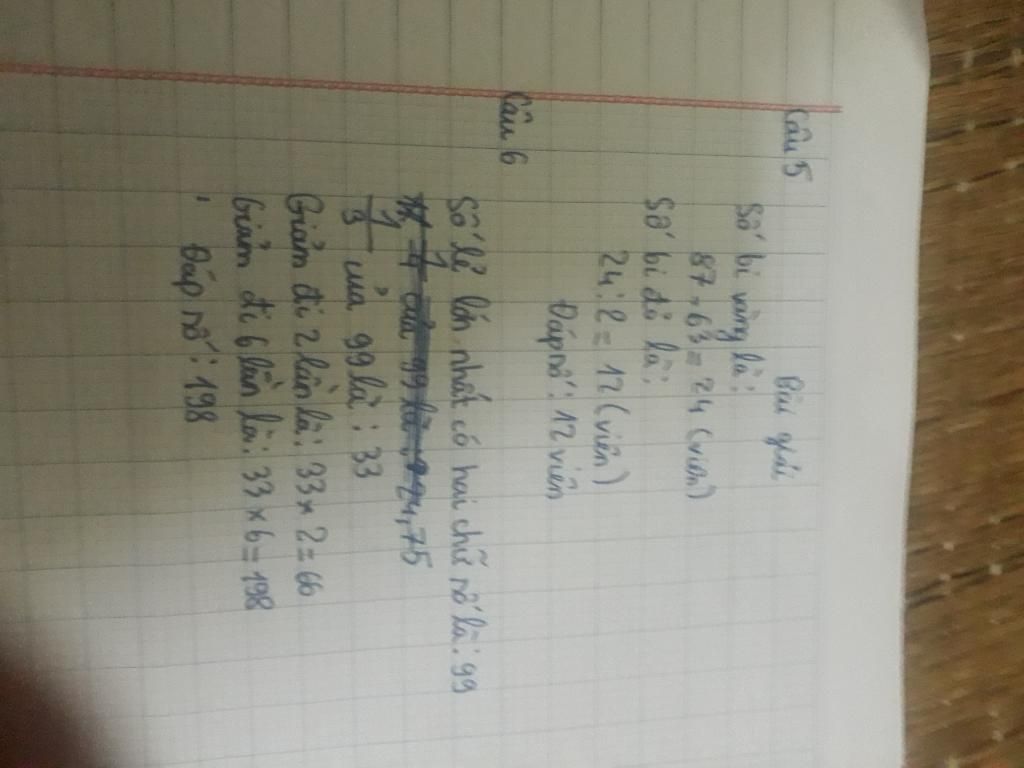 Câu 5
Bài giải
Số bi vàng là:
87 - 63 = 24 (viên)
Số bi đỏ là:
24 : 2 = 12 (viên)
Đáp số: 12 viên
Câu 6
Số lẻ lớn nhất có hai chữ số là: 99
1/4 của 99 là: 24,75
1/3 của 99 là: 33
Giảm đi 2 lần là: 33 x 2 = 66
Giảm đi 6 lần là: 33 x 6 = 198
Đáp số: 198